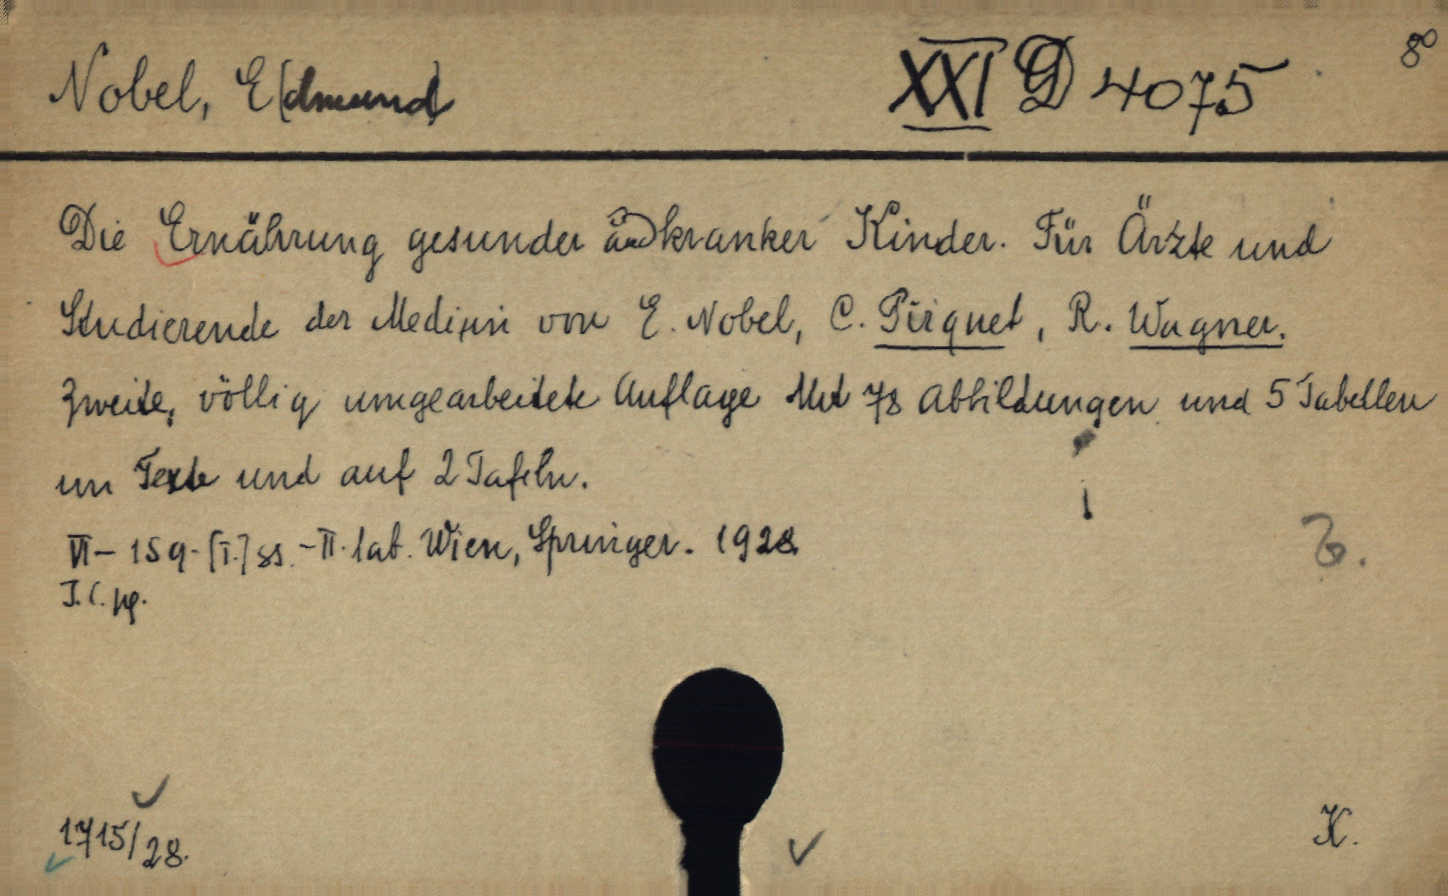 Nobel, E(dmund)
XXI G 4075
8°
Die Ernährung gesunder und kranker Kinder. Für Ärzte und
Studierende der Medizin von E. Nobel, C. Pirquet, R. Wagner.
Zweite, völlig umgearbeitete Auflage Mit 78 Abbildungen und 5 Tabellen
im Texte und auf 2 Tafeln.
VI – 159 - [I.] ss. – II. tab. Wien, Springer. 1928
J. C. pg.
1715/28.
K.